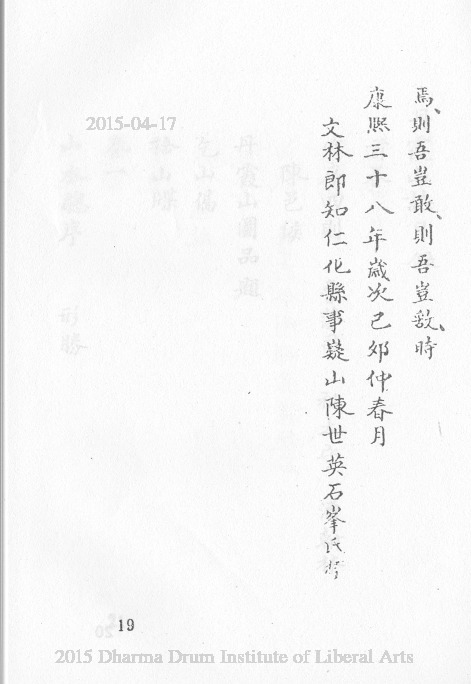 焉、則吾豈敢、則吾豈敢、時
康熙三十八年歲次己卯仲春月
文林郎知仁化縣事疑山陳世英石峯氏
2015-04-17
19
2015 Dharma Drum Institute of Liberal Arts